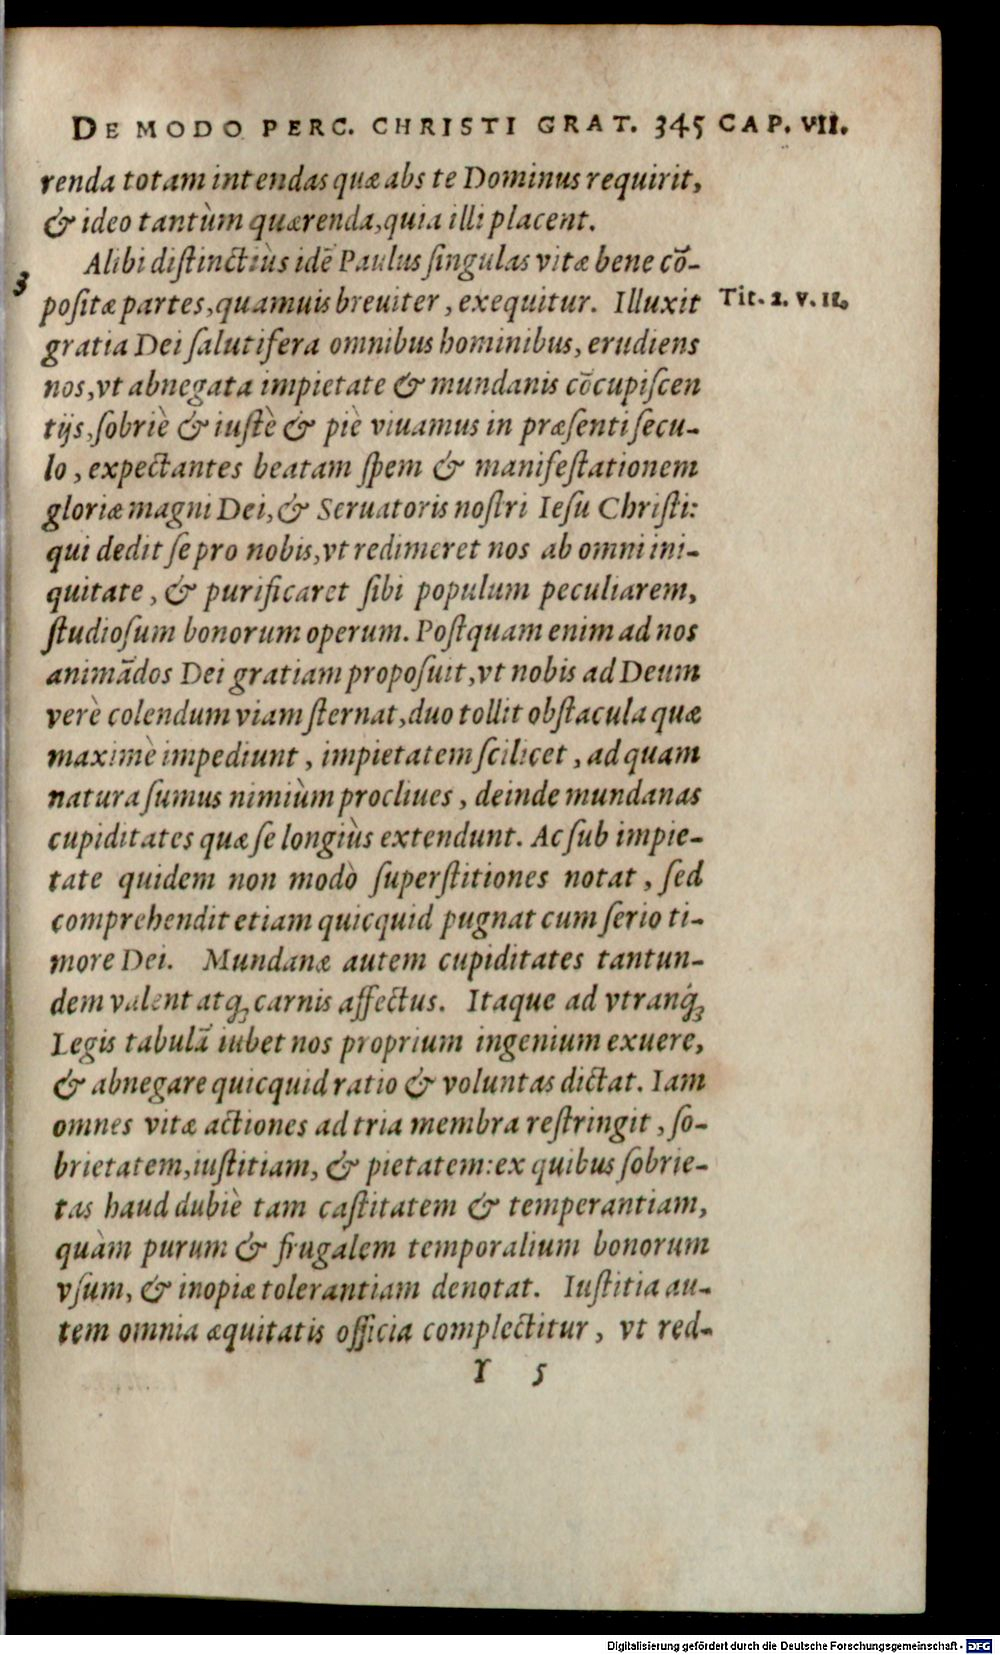 DE MODO PERC. CHRISTI GRAT. 345 CAP. VII.
renda totam intendas quæ abs te Dominus requirit,
& ideo tantùm quærenda, quia illi placent.
3 Alibi distinctiùs idē Paulus singulas vitæ bene cō-
positæ partes, quamuis breuiter, exequitur. Illuxit Tit. 2. v. 11.
gratia Dei salutifera omnibus hominibus, erudiens
nos, vt abnegata impietate & mundanis cōcupiscen
tijs, sobriè & iustè & piè viuamus in præsenti secu-
lo, expectantes beatam spem & manifestationem
gloriæ magni Dei, & Seruatoris nostri Iesu Christi:
qui dedit se pro nobis, vt redimeret nos ab omni ini-
quitate, & purificaret sibi populum peculiarem,
studiosum bonorum operum. Postquam enim ad nos
animādos Dei gratiam proposuit, vt nobis ad Deum
verè colendum viam sternat, duo tollit obstacula quæ
maximè impediunt, impietatem scilicet, ad quam
natura sumus nimiùm procliues, deinde mundanas
cupiditates quæ se longiùs extendunt. Ac sub impie-
tate quidem non modò superstitiones notat, sed
comprehendit etiam quicquid pugnat cum serio ti-
more Dei. Mundanæ autem cupiditates tantun-
dem valent atq; carnis affectus. Itaque ad vtranq́;
Legis tabulā iubet nos proprium ingenium exuere,
& abnegare quicquid ratio & voluntas dictat. Iam
omnes vitæ actiones ad tria membra restringit, so-
brietatem, iustitiam, & pietatem: ex quibus sobrie-
tas haud dubiè tam castitatem & temperantiam,
quàm purum & frugalem temporalium bonorum
vsum, & inopiæ tolerantiam denotat. Iustitia au-
tem omnia æquitatis officia complectitur, vt red-
Y 5
Digitalisierung gefördert durch die Deutsche Forschungsgemeinschaft - DFG